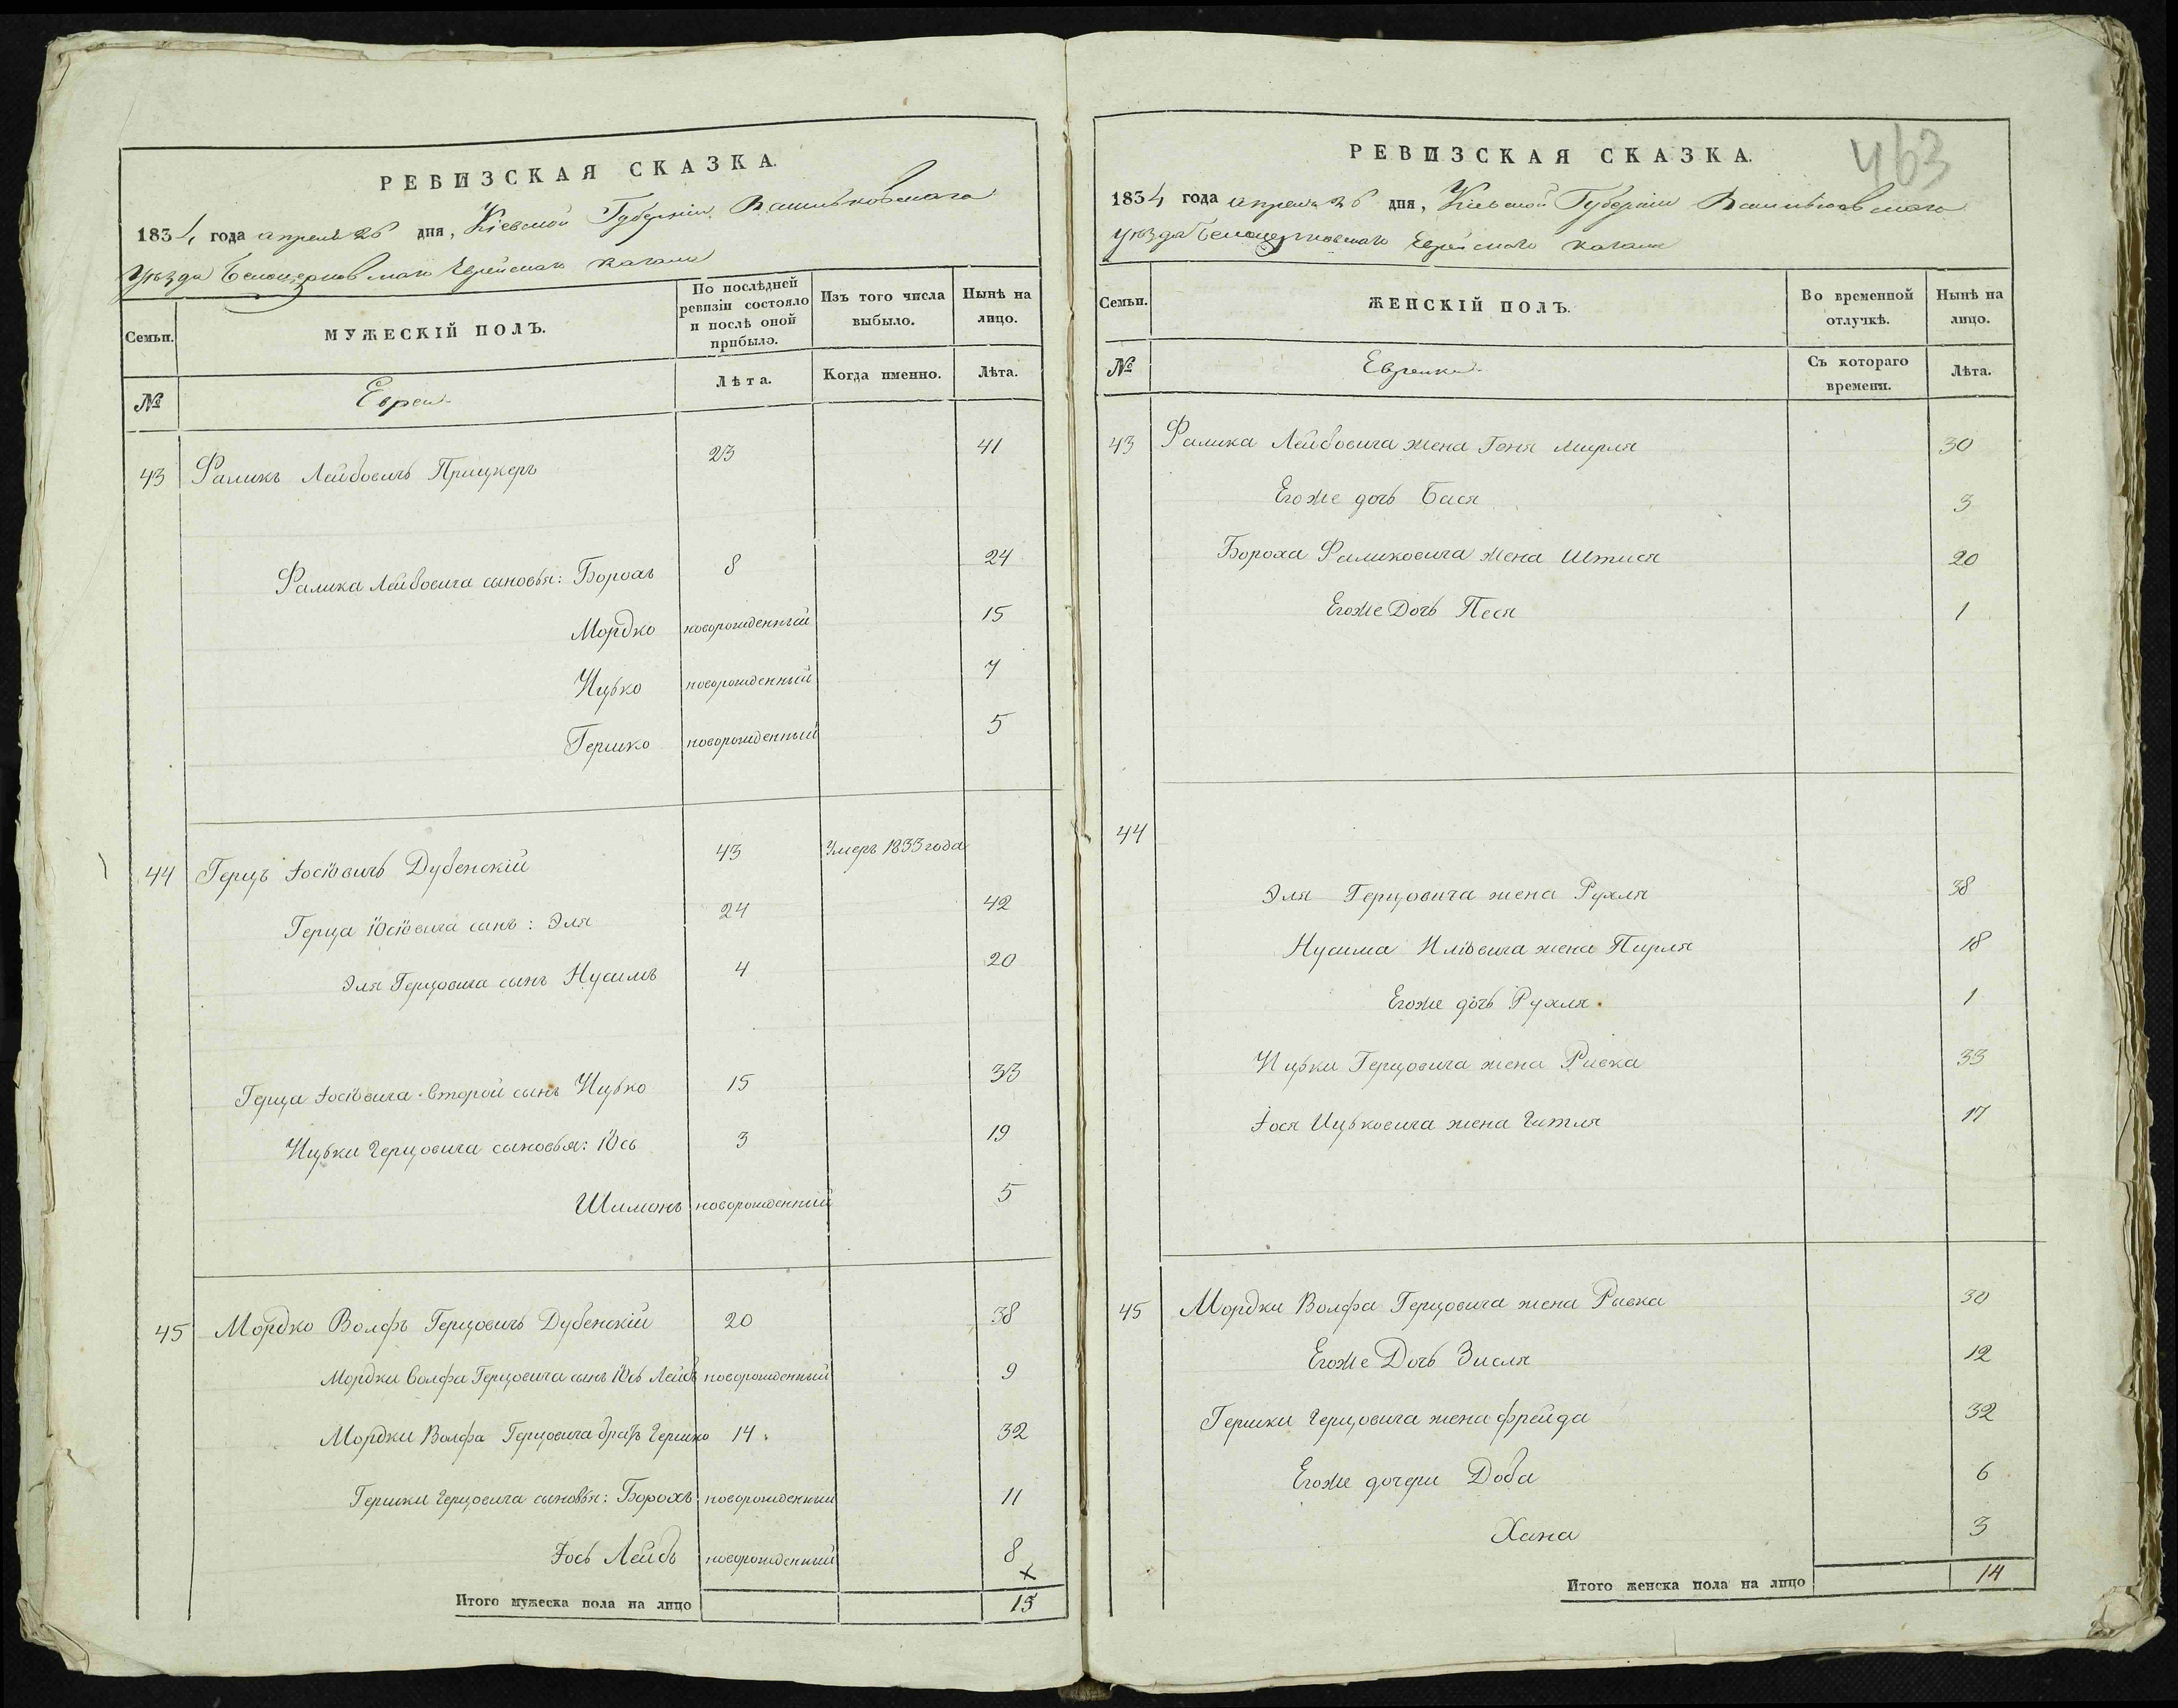 РЕВИЗСКАЯ СКАЗКА.
1834 года апреля 26 дня, Кіевской Губерніи Васильковскаго
Уѣзда Белоцерковскаго Еврейскаго Кагала
Семьи.
МУЖЕСКІЙ ПОЛЪ.
По послѣдней ревизіи состояло и послѣ оной прибыло.
Изъ того числа выбыло.
Нынѣ на лицо.
№
Евреи
Лѣта.
Когда именно.
Лѣта.
43 Фаликъ Лейбовичъ Прицкеръ 23 41
Фалика Лейбовича сыновья: Борохъ 8 24
Мордко новорожденный 15
Ицько новорожденный 7
Гершко новорожденный 5
44 Герцъ Іосіовичъ Дубенскій 43 Умеръ 1833 года
Герца Іосіовича сынъ: Эля 24 42
Эля Герцовича сынъ Нусимъ 4 20
Герца Іосіовича второй сынъ Ицько 15 33
Ицьки Герцовича сыновья: Іось 3 19
Шимонъ новорожденный 5
45 Мордко Волфъ Герцовичъ Дубенскій 20 38
Мордки Волфа Герцовича сынъ Іось Лейбъ новорожденный 9
Мордки Волфа Герцовича братъ Гершко 14 32
Гершки Герцовича сыновья: Борохъ новорожденный 11
Іось Лейбъ новорожденный 8
Итого мужеска пола на лицо 15
РЕВИЗСКАЯ СКАЗКА.
463
1834 года апреля 26 дня, Кіевской Губерніи Васильковскаго
Уѣзда Белоцерковскаго Еврейскаго Кагала
Семьи.
ЖЕНСКІЙ ПОЛЪ.
Во временной отлучкѣ.
Нынѣ на лицо.
№
Еврейки
Съ котораго времени.
Лѣта.
43 Фалика Лейбовича жена Геня Мирля 30
Егоже дочь Бася 3
Бороха Фаликовича жена 20
Егоже Дочь Песя 1
44
Эля Герцовича жена Рухля 38
Нусима Иліовича жена Пирля 18
Егоже дочь Рухля 1
Ицьки Герцовича жена Ривка 33
Іося Ицьковича жена Гитля 17
45 Мордки Волфа Герцовича жена Ривка 30
Егоже Дочь Зисля 12
Гершки Герцовича жена фрейда 32
Егоже дочери Доба 6
Хана 3
Итого женска пола на лицо 14